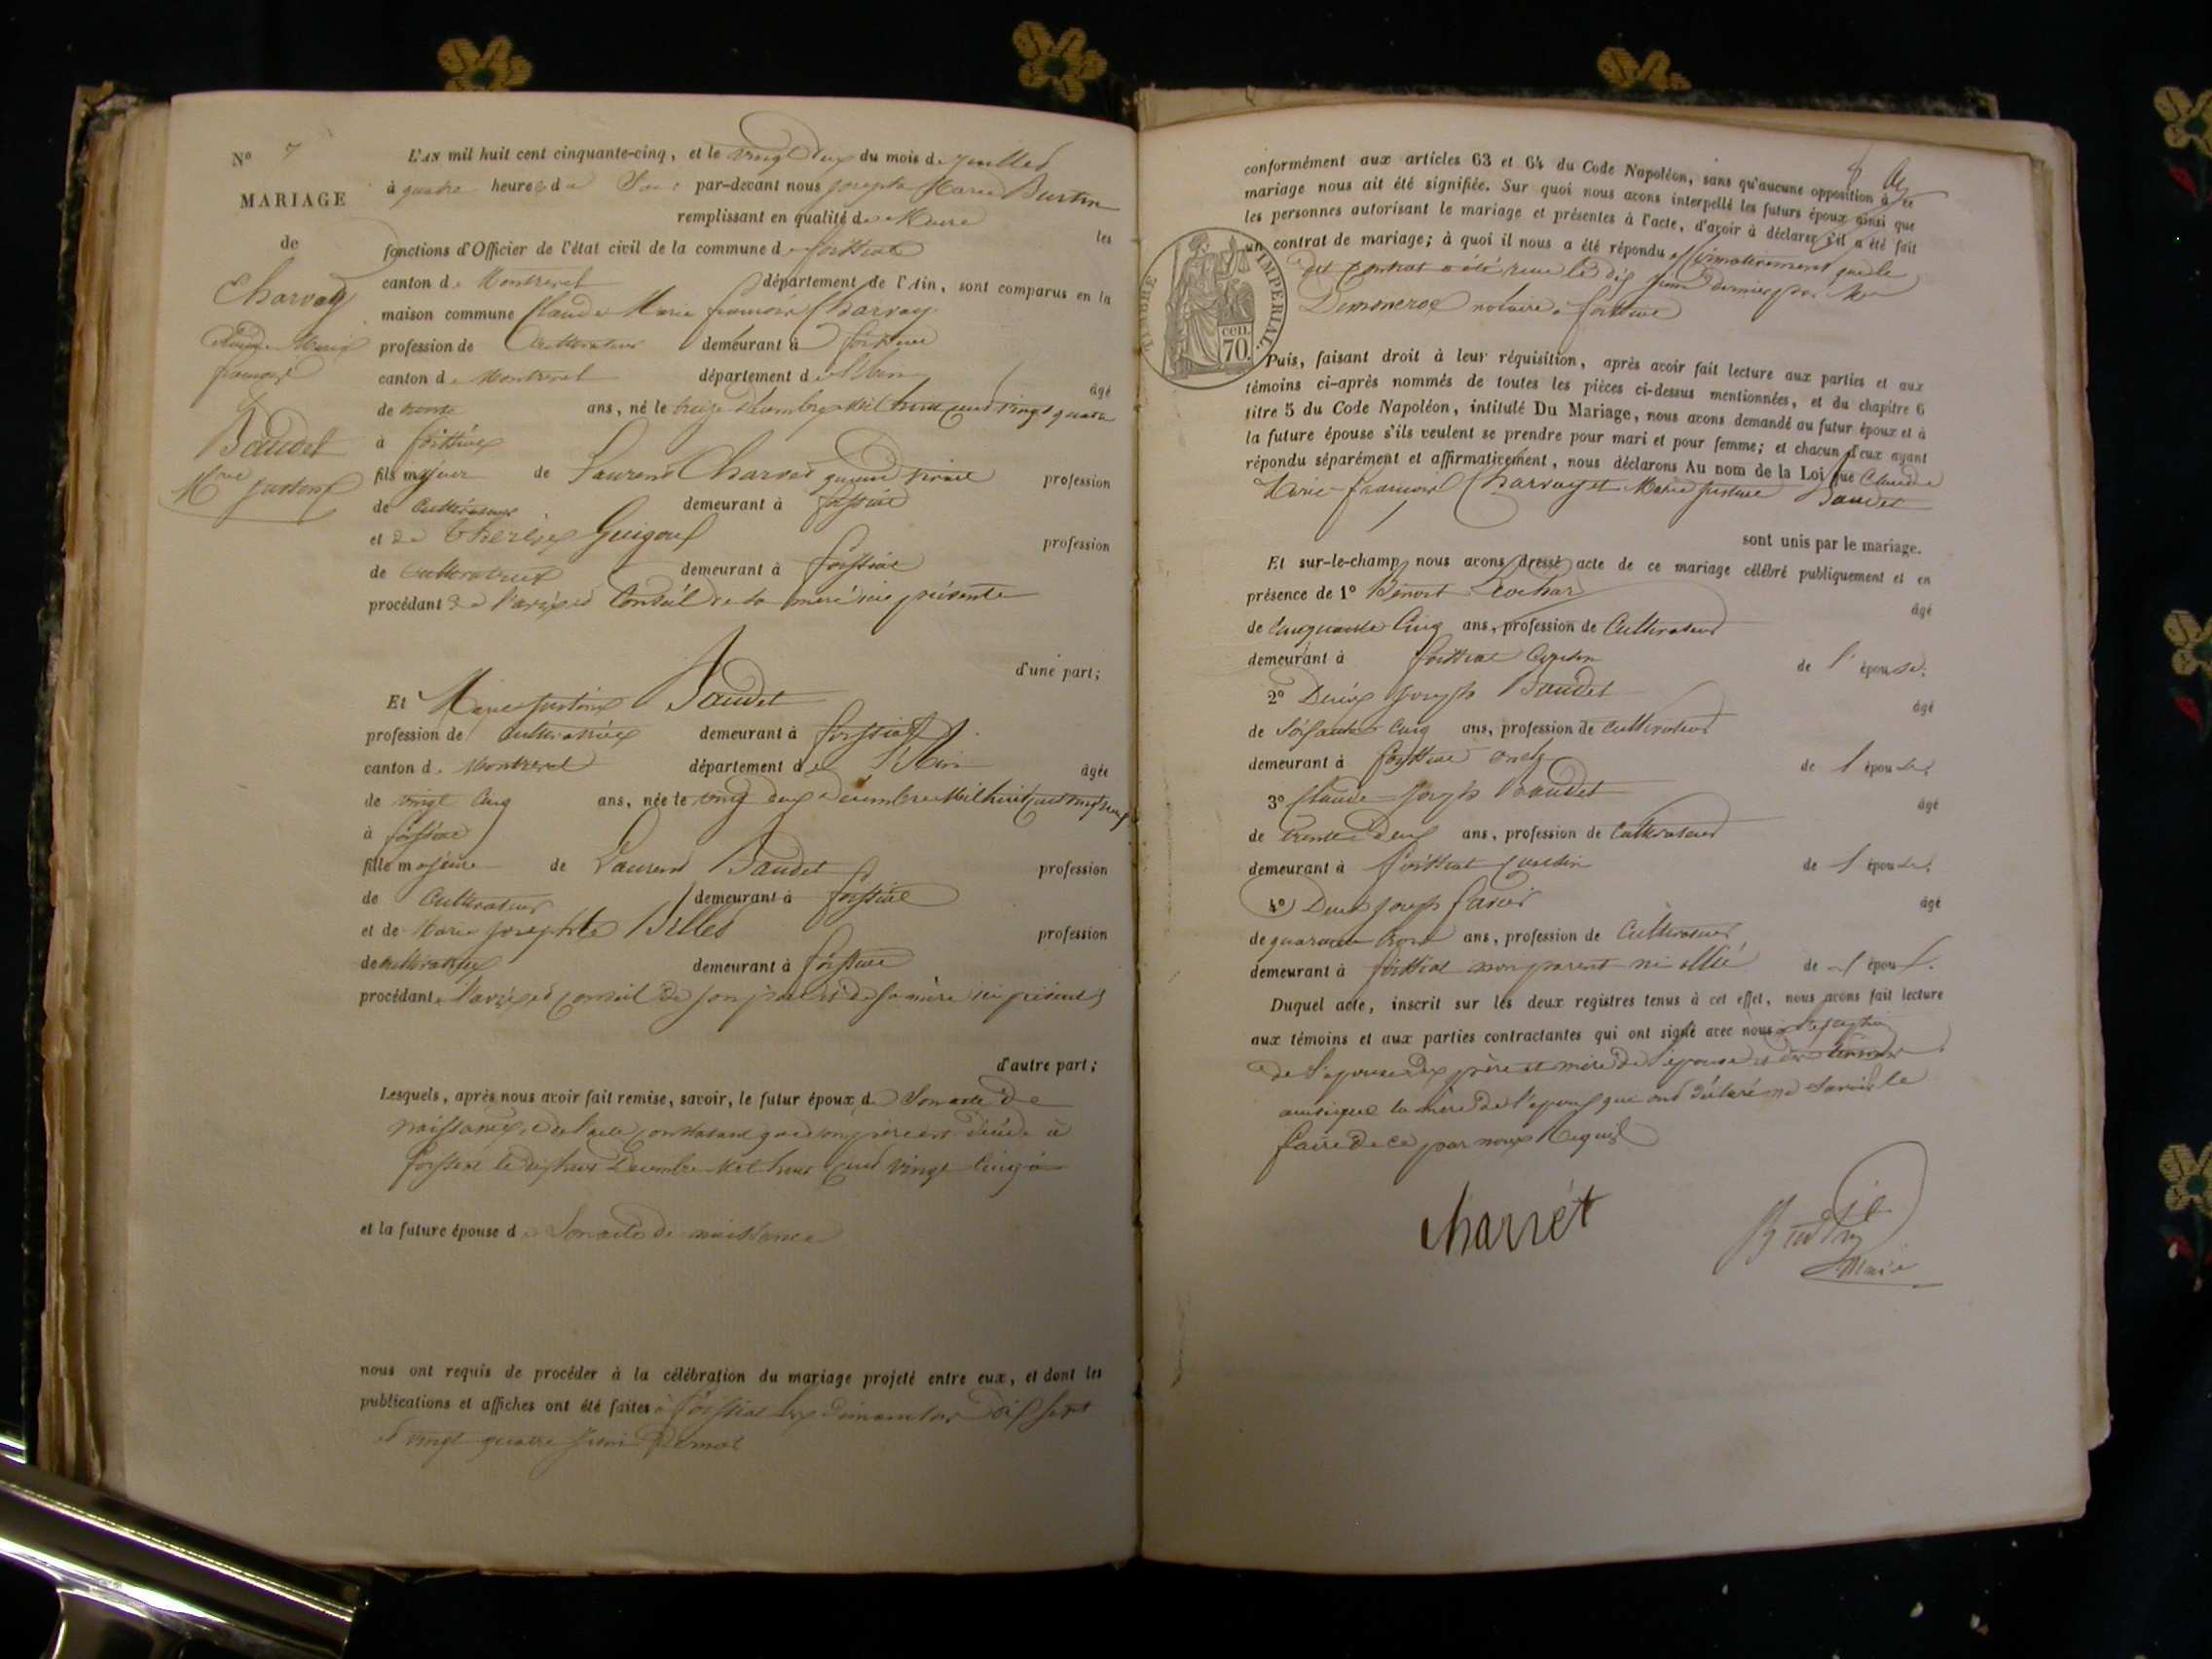 Nº 7
MARIAGE
de
Charvay
Claude Marie
françois
&
Baudet
Mrie justine
L'AN mil huit cent cinquante-cinq, et le vingt deux du mois de juillet
à quatre heures du Soir par-devant nous joseph Marie Burtin
remplissant en qualité de Maire les
fonctions d'Officier de l'état civil de la commune de foissiat
canton de Montrevel département de l'Ain, sont comparus en la
maison commune Claude Marie françois Charvay
profession de Cultivateur demeurant à foissiat
canton de Montrevel département de l'Ain âgé
de trente ans, né le treize Décembre Mil huit cent vingt quatre
à foissiat
fils majeur de Laurent Charvet quand vivait profession
de Cultivateur demeurant à foissiat
et de therèse Guigout profession
de Cultivatrice demeurant à foissiat
procédant de l'avis et Conseil de sa mère ici présente
d'une part;
Et Marie justine Baudet
profession de Cultivatrice demeurant à foissiat
canton de Montrevel département de l'Ain âgée
de vingt Cinq ans, née le vingt deux Décembre Mil huit cent vingt neuf
à foissiat
fille majeure de Laurent Baudet profession
de Cultivateur demeurant à foissiat
et de Marie josephte Billet profession
de Cultivatrice demeurant à foissiat
procédant de l'avis et conseil de son père et de sa mère ici présents
d'autre part;
Lesquels, après nous avoir fait remise, savoir, le futur époux de Son acte de
naissance, et de l'acte constatant que son père est décédé à
foissiat le dix huit Décembre Mil huit cent vingt Cinq
et la future épouse de Son acte de naissance
nous ont requis de procéder à la célébration du mariage projeté entre eux, et dont les
publications et affiches ont été faites à foissiat les dimanches dix sept
et vingt quatre juin dernier
conformément aux articles 63 et 64 du Code Napoléon, sans qu'aucune opposition à ce
mariage nous ait été signifiée. Sur quoi nous avons interpellé les futurs époux ainsi que
les personnes autorisant le mariage et présentes à l'acte, d'avoir à déclarer s'il a été fait
un contrat de mariage; à quoi il nous a été répondu affirmativement que le
dit contrat a été reçu le dix juin dernier par Me
notaire à foissiat
TIMBRE IMPERIAL
70 cen.
Puis, faisant droit à leur réquisition, après avoir fait lecture aux parties et aux
témoins ci-après nommés de toutes les pièces ci-dessus mentionnées, et du chapitre 6
titre 5 du Code Napoléon, intitulé Du Mariage, nous avons demandé au futur époux et à
la future épouse s'ils veulent se prendre pour mari et pour femme; et chacun d'eux ayant
répondu séparément et affirmativement, nous déclarons Au nom de la Loi, que Claude
Marie françois Charvay et Marie justine Baudet
sont unis par le mariage.
Et sur-le-champ, nous avons dressé acte de ce mariage célébré publiquement et en
présence de 1º Benoit Lochard âgé
de Cinquante Cinq ans, profession de Cultivateur
demeurant à foissiat Cousin de l'épouse;
2º Denis joseph Baudet âgé
de Soixante Cinq ans, profession de Cultivateur
demeurant à foissiat oncle de l'épouse;
3º Claude joseph Baudet âgé
de trente Deux ans, profession de Cultivateur
demeurant à foissiat Cousin de l'épouse;
4º Denis joseph favier âgé
de quarante trois ans, profession de Cultivateur
demeurant à foissiat non parent ni allié de l'époux.
Duquel acte, inscrit sur les deux registres tenus à cet effet, nous avons fait lecture
aux témoins et aux parties contractantes qui ont signé avec nous à l'exception
de l'epouse des père et mère de l'epouse et des témoins
ainsi que la mère de l'epoux qui ont déclaré ne Savoir le
faire de ce par nous Requis
charvet
Burtin
Maire